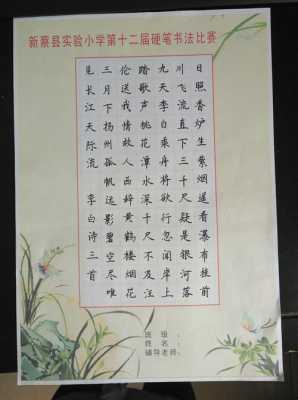 新蔡县实验小学第十二届硬笔书法比赛
日照香炉生紫烟遥看瀑布挂前
川飞流直下三千尺疑是银河落
九天李白乘舟将欲行忽闻岸上
踏歌声桃花潭水深千尺不及汪
伦送我情故人西辞黄鹤楼烟花
三月下扬州孤帆远影碧空尽唯
见长江天际流 李白诗三首
班 级:
姓 名:
辅导老师: